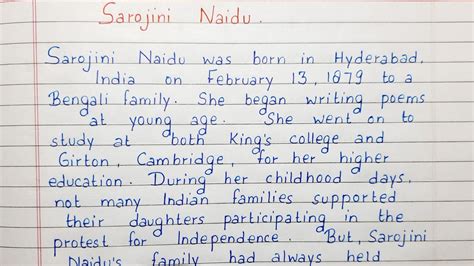 Sarojini Naidu.
Sarojini Naidu was born in Hyderabad,
India on February 13, 1879 to a
Bengali family. She began writing poems
at young age. She went on to
study at both King's college and
Girton, Cambridge, for her higher
education. During her childhood days,
not many Indian families supported
their daughters participating in the
protest for Independence. But, Sarojini
Naidu's family had always held